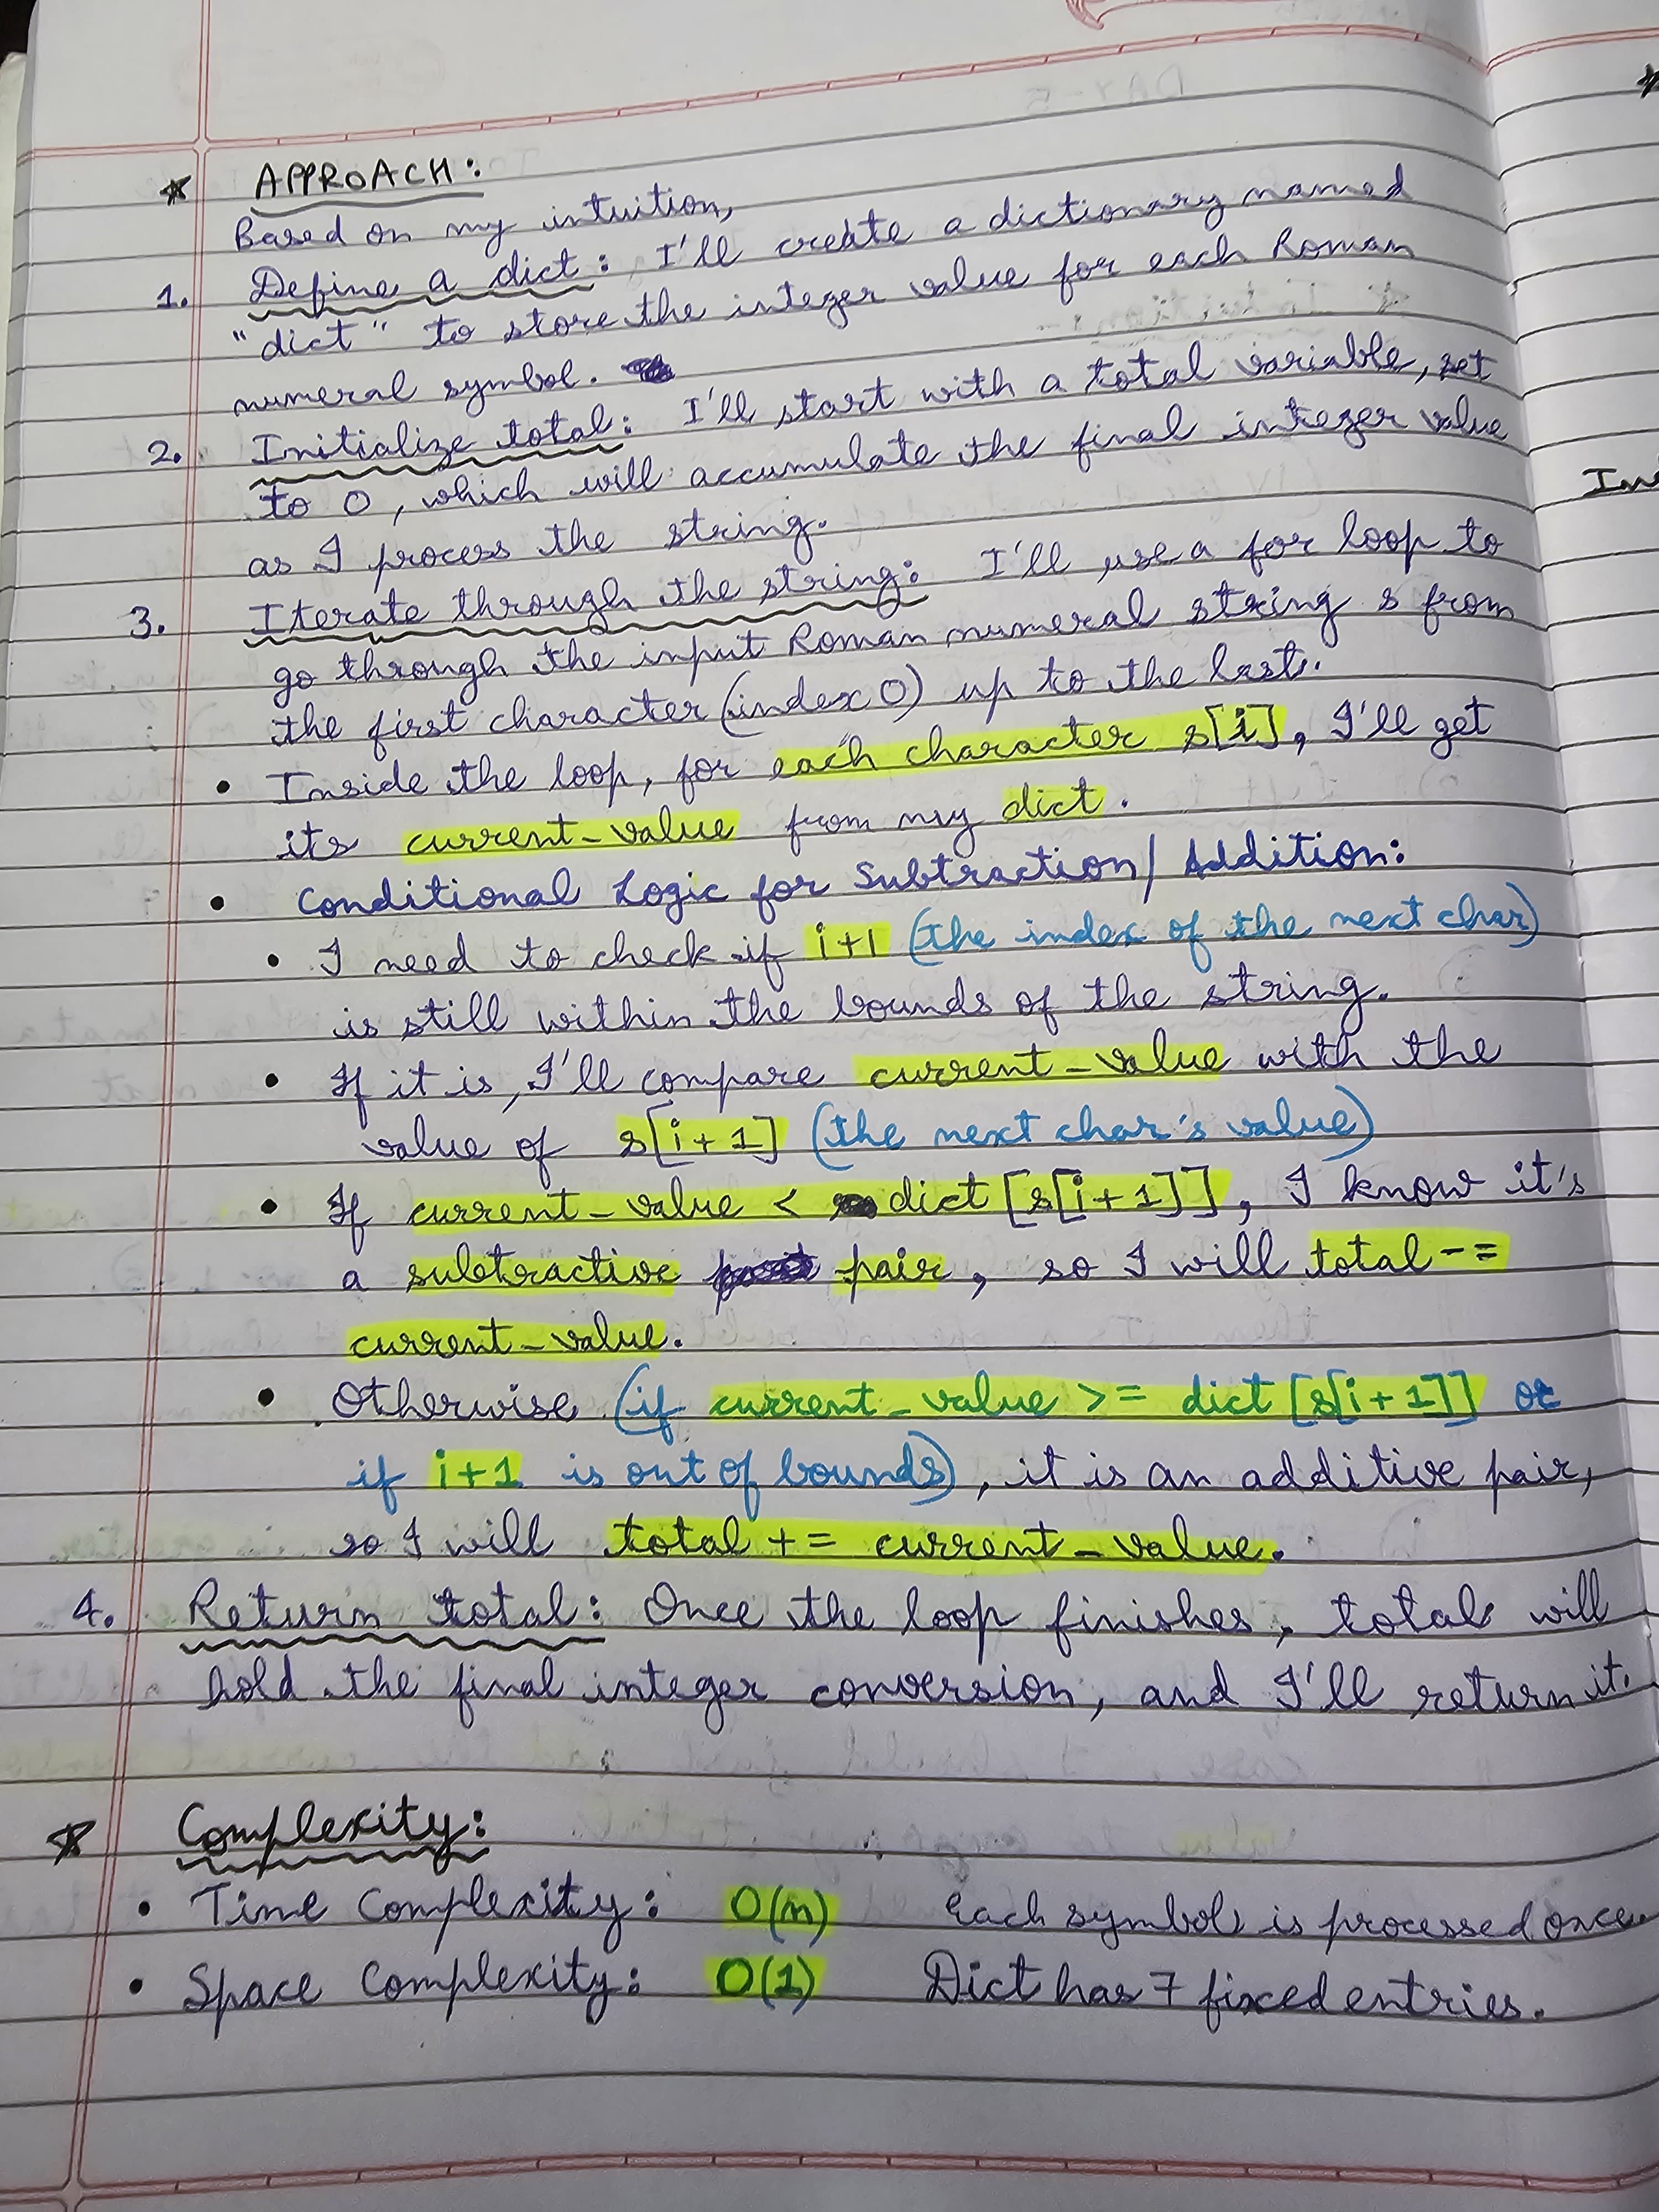 ★ APPROACH:
Based on my intuition,
1. Define a dict: I'll create a dictionary named
"dict" to store the integer value for each Roman
numeral symbol.
2. Initialize total: I'll start with a total variable, set
to 0, which will accumulate the final integer value
as I process the string.
3. Iterate through the string: I'll use a for loop to
go through the input Roman numeral string s from
the first character (index 0) up to the last.
• Inside the loop, for each character s[i], I'll get
its current_value from my dict.
• Conditional Logic for Subtraction/Addition:
• I need to check if i+1 (the index of the next char)
is still within the bounds of the string.
• If it is, I'll compare current_value with the
value of s[i+1] (the next char's value)
• If current_value < dict[s[i+1]], I know it's
a subtractive pair, so I will total -=
current_value.
• Otherwise (if current_value >= dict[s[i+1]] or
if i+1 is out of bounds), it is an additive pair,
so I will total += current_value.
4. Return total: Once the loop finishes, total will
hold the final integer conversion, and I'll return it.
★ Complexity:
• Time Complexity: O(n) Each symbol is processed once.
• Space Complexity: O(1) Dict has 7 fixed entries.